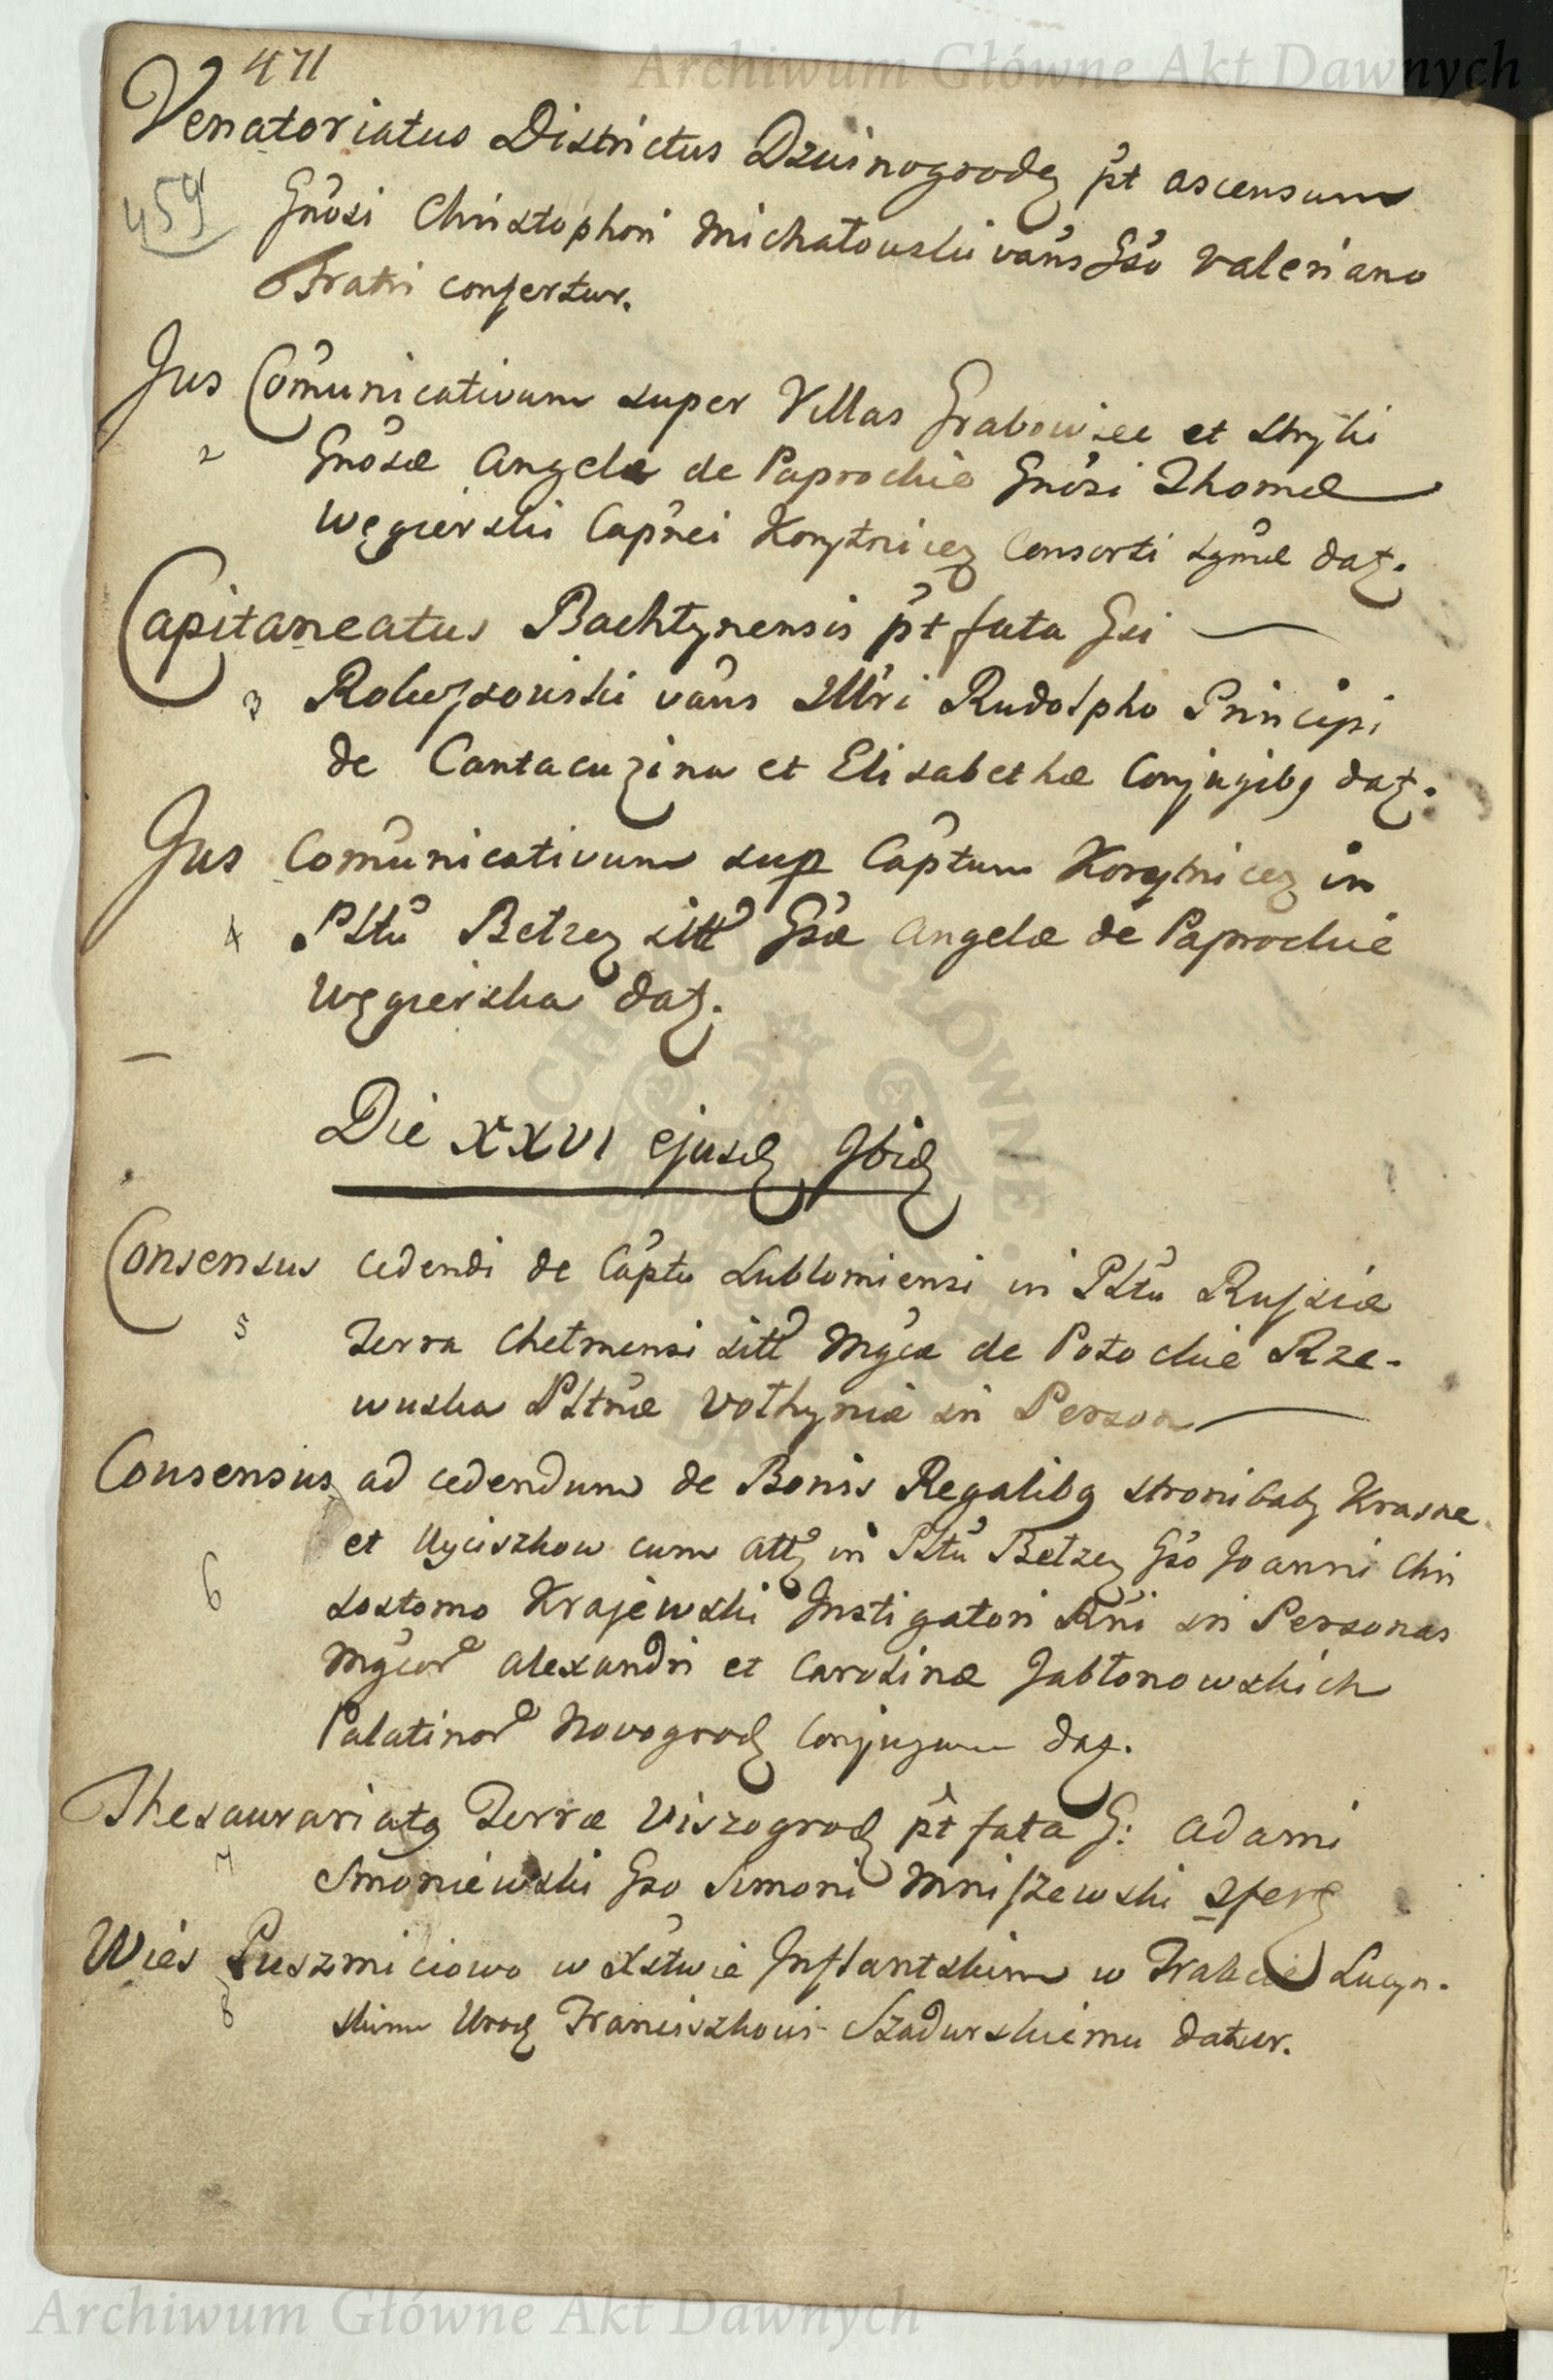 Archiwum Główne Akt Dawnych
471
Venatoriatus Districtus Dzwinogrodz pt ascensum
459
Gnosi Christophori Michałowski vans Gso Valeriano
Fratri confertur.
Jus Comunicativum super Villas Grabowiec et Stryki
2 Gnosæ Angelæ de Paprockie Gnosi Thomæ
Węgierski Capnei Korytnicez Consorti Lgmæ datz.
Capitaneatus Bachtynensis pt fata Gsi
3 vans Illri Rudolpho Principi
de Cantacuzina et Elisabethæ Conjugibg datz.
Jus Comunicativum sup Captum Korytnicez in
4 Pltu Betzez sitt Gsæ Angelæ de Paprockie
Węgierska datz.
Die XXVI ejusd Ibid
Consensus cedendi de Captu Lublomiensi in Pltu Russiæ
5 Terra Chełmensi sitt Mgcæ de Potockie Rze-
wuska Pltnæ Volhyniæ in Person
Consensus ad cedendum de Bonis Regalibg Stronibaby Krasne
et Uciszkow cum att in Pltu Bełzez Gso Joanni Chri
6 sostomo Krajewski Instigatori Rni in Personas
Mgcor Alexandri et Carolinæ Jabłonowskich
Palatinor Novogrod Conjugum daz.
Thesaurariatg Terræ Viszogrod pt fata G: Adami
7 Smoniewski Gso Simoni Mniszewski
Wieś Puszmiciowo w Xstwie Inflantskim w Trakcie Lucyn-
8 skim Urod Franciszkowi Szadurskiemu datur.
Archiwum Główne Akt Dawnych